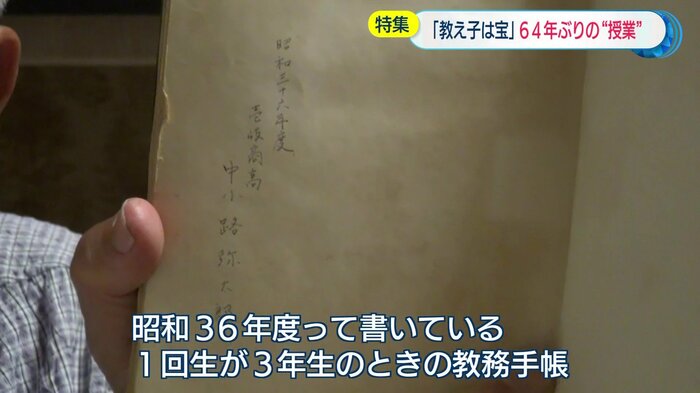 特集
「教え子は宝」64年ぶりの“授業”
昭和三十六年度
壱岐商高
中小路弥太郎
昭和36年度って書いている
1回生が3年生のときの教務手帳